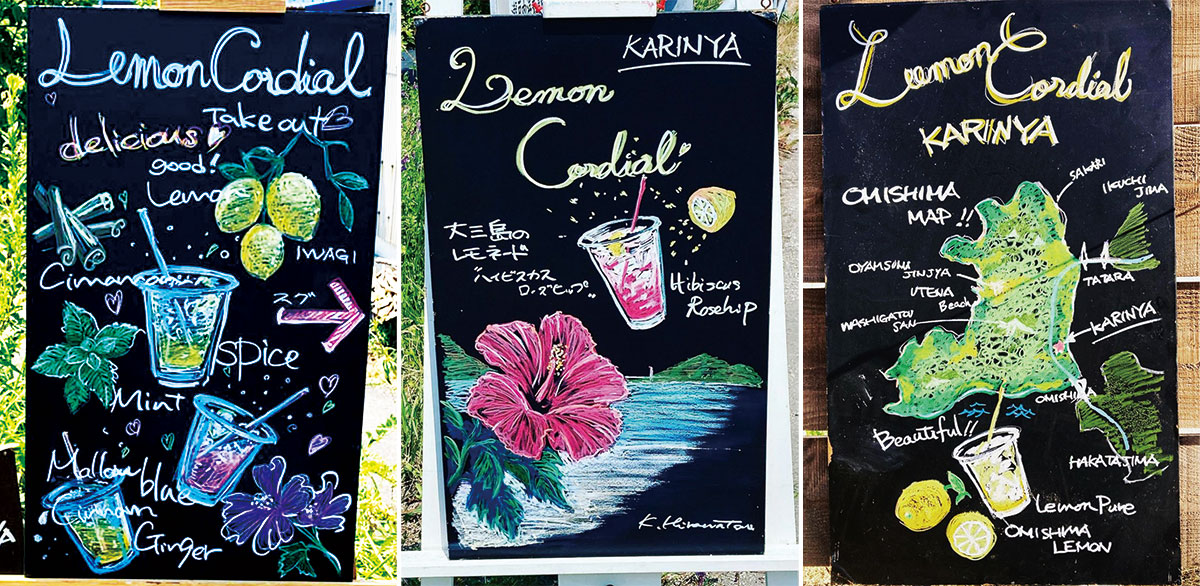 Lemon Cordial
Take out
delicious
good!
Lemon
IWAGI
Cinamon
スグ
spice
Mint
Mallow
blue
Cinnamon
Ginger
KARINYA
Lemon
Cordial
大三島の
レモネード
"ハイビスカス
ローズヒップ"
Hibiscus
Rosehip
Lemon
Cordial
KARINYA
OMISHIMA
MAP!!
SAKARI
IKUCHI
JIMA
OYAMSUMI
JINJYA
UTENA
Beach
WASHIGATOU
SAN
TATARA
KARINYA
OMISHIMA
Beautiful!!
HAKATAJIMA
Lemon Pure
OMISHIMA
LEMON